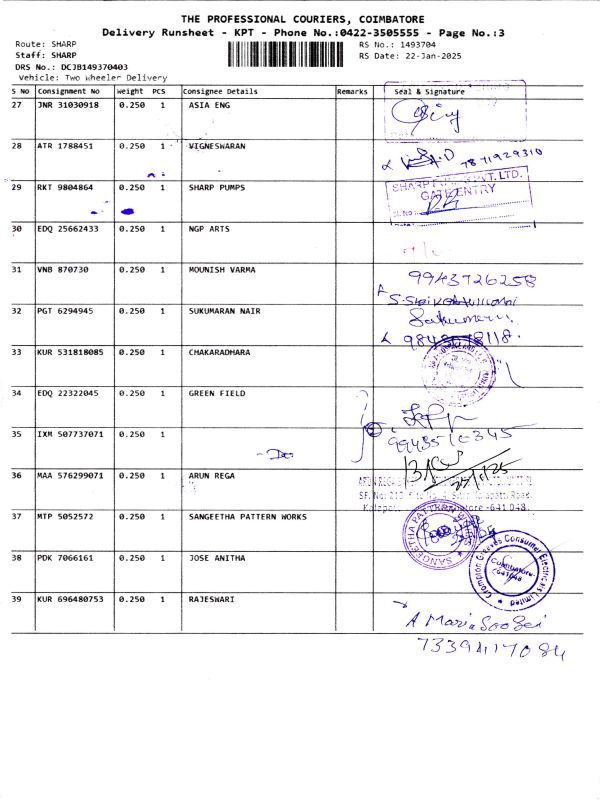 THE PROFESSIONAL COURIERS, COIMBATORE
Delivery Runsheet - KPT - Phone No.:0422-3505555 - Page No.:3
Route: SHARP
RS No.: 1493704
Staff: SHARP
RS Date: 22-Jan-2025
DRS No.: DCJB149370403
Vehicle: Two Wheeler Delivery
S No Consignment No Weight PCS Consignee Details Remarks Seal & Signature
27 JNR 31030918 0.250 1 ASIA ENG
28 ATR 1788451 0.250 1 VIGNESWARAN
7871929310
29 RKT 9804864 0.250 1 SHARP PUMPS
SHARP PVT. LTD.
GATE ENTRY
30 EDQ 25662433 0.250 1 NGP ARTS
31 VNB 870730 0.250 1 MOUNISH VARMA
9943726258
32 PGT 6294945 0.250 1 SUKUMARAN NAIR
33 KUR 531818085 0.250 1 CHAKARADHARA
34 EDQ 22322045 0.250 1 GREEN FIELD
35 IXM 507737071 0.250 1
-Do-
36 MAA 576299071 0.250 1 ARUN REGA
ARUN REGA
Road,
-641 048.
37 MTP 5052572 0.250 1 SANGEETHA PATTERN WORKS
SANGEETHA PATTERN
38 PDK 7066161 0.250 1 JOSE ANITHA
Crompton Greaves Consumer Electricals Limited
Coimbatore
641048
39 KUR 696480753 0.250 1 RAJESWARI
A Maria Soosai
7339417084